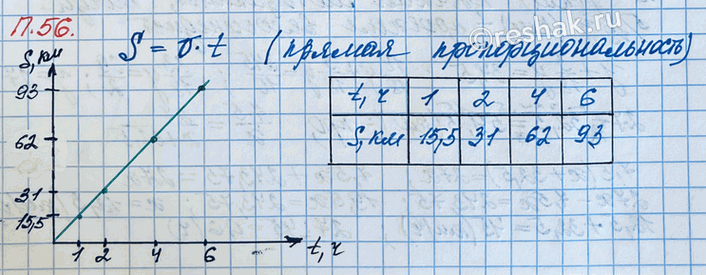 П.56.
©reshak.ru
S = v·t (прямая пропорциональность)
S, км
93
62
31
15,5
1 2 4 6 t, ч
t, ч 1 2 4 6
S, км 15,5 31 62 93